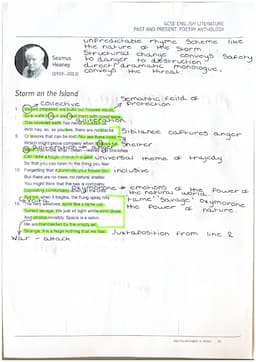 GCSE ENGLISH LITERATURE
PAST AND PRESENT: POETRY ANTHOLOGY
unpredictable rhyme scheme like
the nature of the storm
Structural change conveys safety
to danger to destruction
direct dramatic monologue,
conveys the threat
Seamus
Heaney
(1939 – 2013)
Storm on the Island
Collective
Semantic feild of
protection
We are prepared: we build our houses squat,
Sink walls in rock and roof them with good slate.
alliteration
With hay, so, as you see, there are no stacks
Sibilance captures anger
Or stooks that can be lost. Nor are there trees
Which might prove company when it blows full
shelter
Can raise a tragic chorus in a gale
universal theme of tragedy
So that you can listen to the thing you fear
Forgetting that it pummels your house too.
inclusive
But there are no trees, no natural shelter.
You might think that the sea is company,
Oxymorone → emotions of the power of
the natural world.
Exploding comfortably down on the cliffs
But no: when it begins, the flung spray hits
tame "savage" oxymorone
The very windows, spits like a tame cat
the power of
nature.
Turned savage. We just sit tight while wind dives
And strafes invisibly. Space is a salvo,
We are bombarded by the empty air.
Strange, it is a huge nothing that we fear.
Juxtaposition from line 2
War - attack